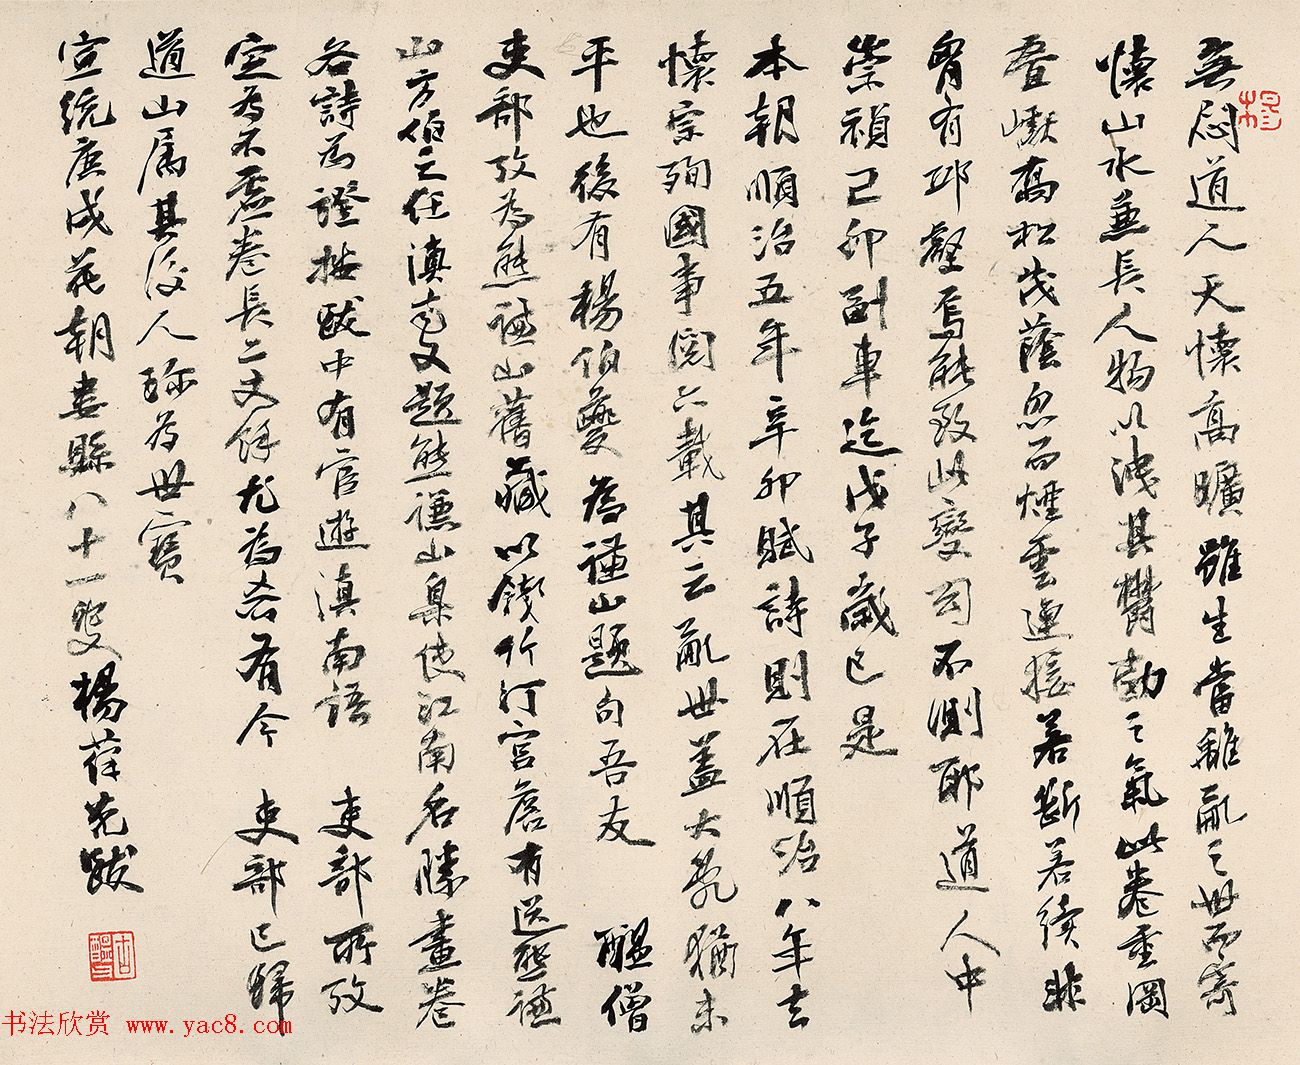 無悶道人天懷高曠雖生當離亂之世而寄
懷山水兼長人物以洩其鬱勃之氣此卷重岡
疊巘喬松茂蔭忽而煙雲連接若斷若續非
胷有邱壑焉能致此變幻不測耶道人中
崇禎己卯副車迄戊子歲已是
本朝順治五年辛卯賦詩則在順治八年去
懷宗殉國事閱六載其云亂世蓋大亂猶未
平也後有楊伯夔為謙山題句吾友 醞僧
吏部攷為熊謙山舊藏以錢竹汀宮詹有送熊謙
山方伯之任滇南又題熊謙山臬使江南名勝畫卷
各詩為證按跋中有官遊滇南語 吏部所攷
定為不虛卷長二丈餘尤為希有今 吏部已歸
道山屬其後人珍為世寶
宣統庚戌花朝婁縣八十一叟楊葆光跋
楊
書法欣赏 www.yac8.com